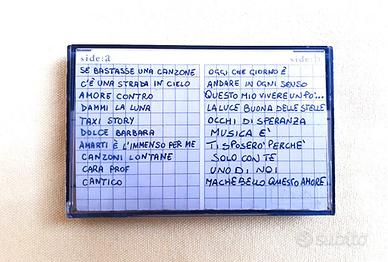 side:a
SE BASTASSE UNA CANZONE
C'È UNA STRADA IN CIELO
AMORE CONTRO
DAMMI LA LUNA
TAXI STORY
DOLCE BARBARA
AMARTI È L'IMMENSO PER ME
CANZONI LONTANE
CARA PROF
CANTICO
side:b
OGGI CHE GIORNO È
ANDARE IN OGNI SENSO
QUESTO MIO VIVERE UN PO'...
LA LUCE BUONA DELLE STELLE
OCCHI DI SPERANZA
MUSICA E'
TI SPOSERO' PERCHE'
SOLO CON TE
UNO DI NOI
MA CHE BELLO QUESTO AMORE
subito